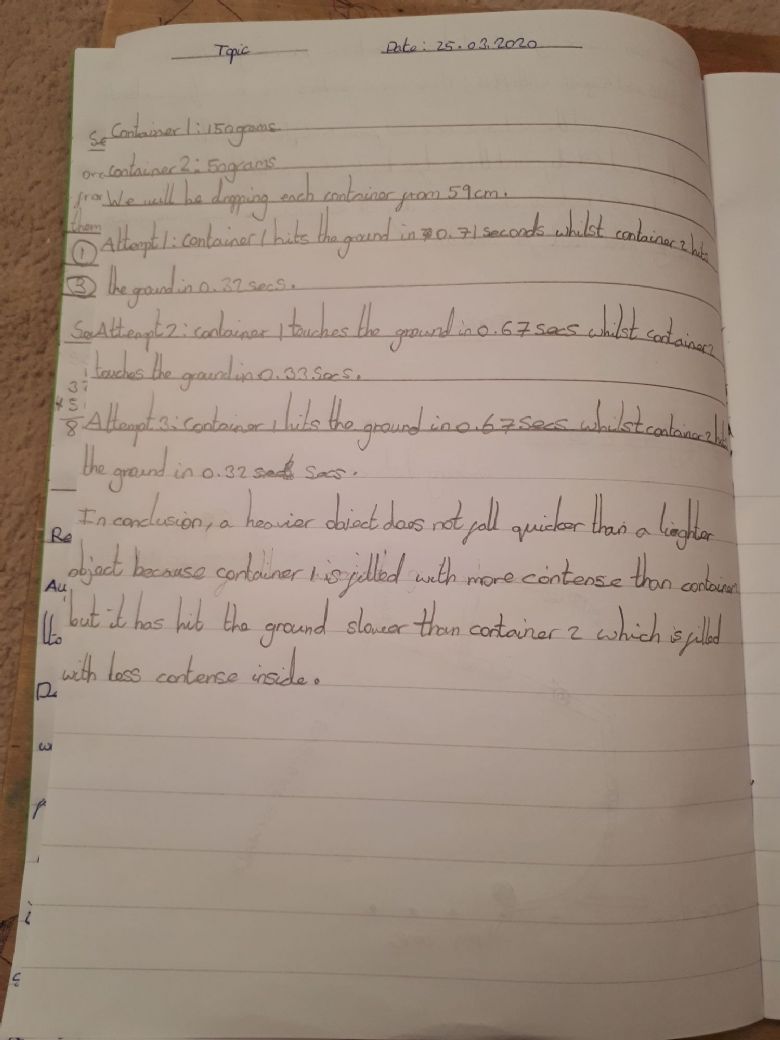 Topic
Date: 25.03.2020
Se Container 1: 150grams
ora container 2: 50grams
fror We will be dropping each container from 59cm.
them
1 Attempt 1: container 1 hits the ground in 0.71 seconds whilst container 2 hits
3 the ground in 0.32 secs.
Se Attempt 2: container 1 touches the ground in 0.67 secs whilst container 2
touches the ground in 0.33 secs.
3
5
8 Attempt 3: container 1 hits the ground in 0.67 secs whilst container 2 hits
the ground in 0.32 secs.
Re In conclusion, a heavier object does not fall quicker than a lieghter
Au object because container 1 is filled with more contense than container
but it has hit the ground slower than container 2 which is filled
with less contense inside.
D
w